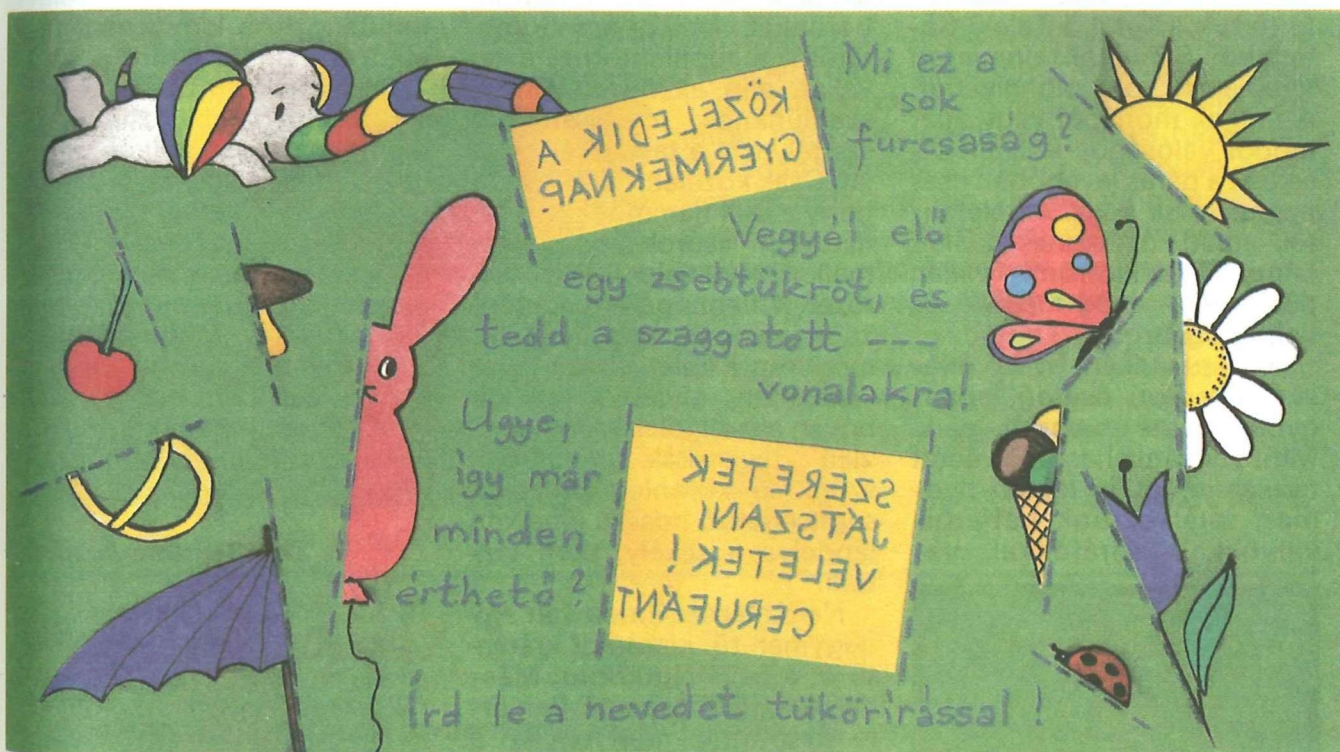 KÖZELEDIK A
GYERMEKNAP
Mi ez a
sok
furcsaság?
Vegyél elő
egy zsebtükröt, és
tedd a szaggatott ---
vonalakra!
Ugye,
így már
minden
érthető?
SZERETEK
JÁTSZANI
VELETEK!
CERUFÁNT
Írd le a nevedet tükörírással!